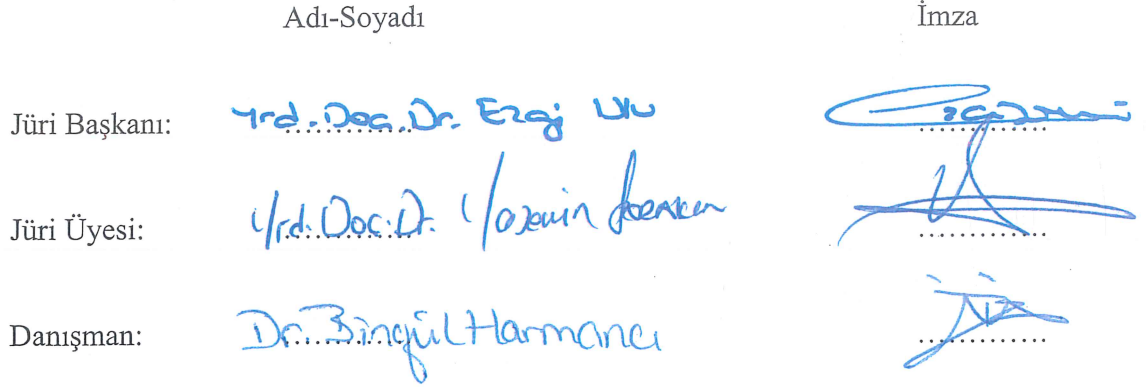 Adı-Soyadı İmza
Jüri Başkanı: Yrd. Doç. Dr. Ezgi Ulu
Jüri Üyesi: Yrd. Doç. Dr. Yasemin
Danışman: Dr. Bingül Harmancı